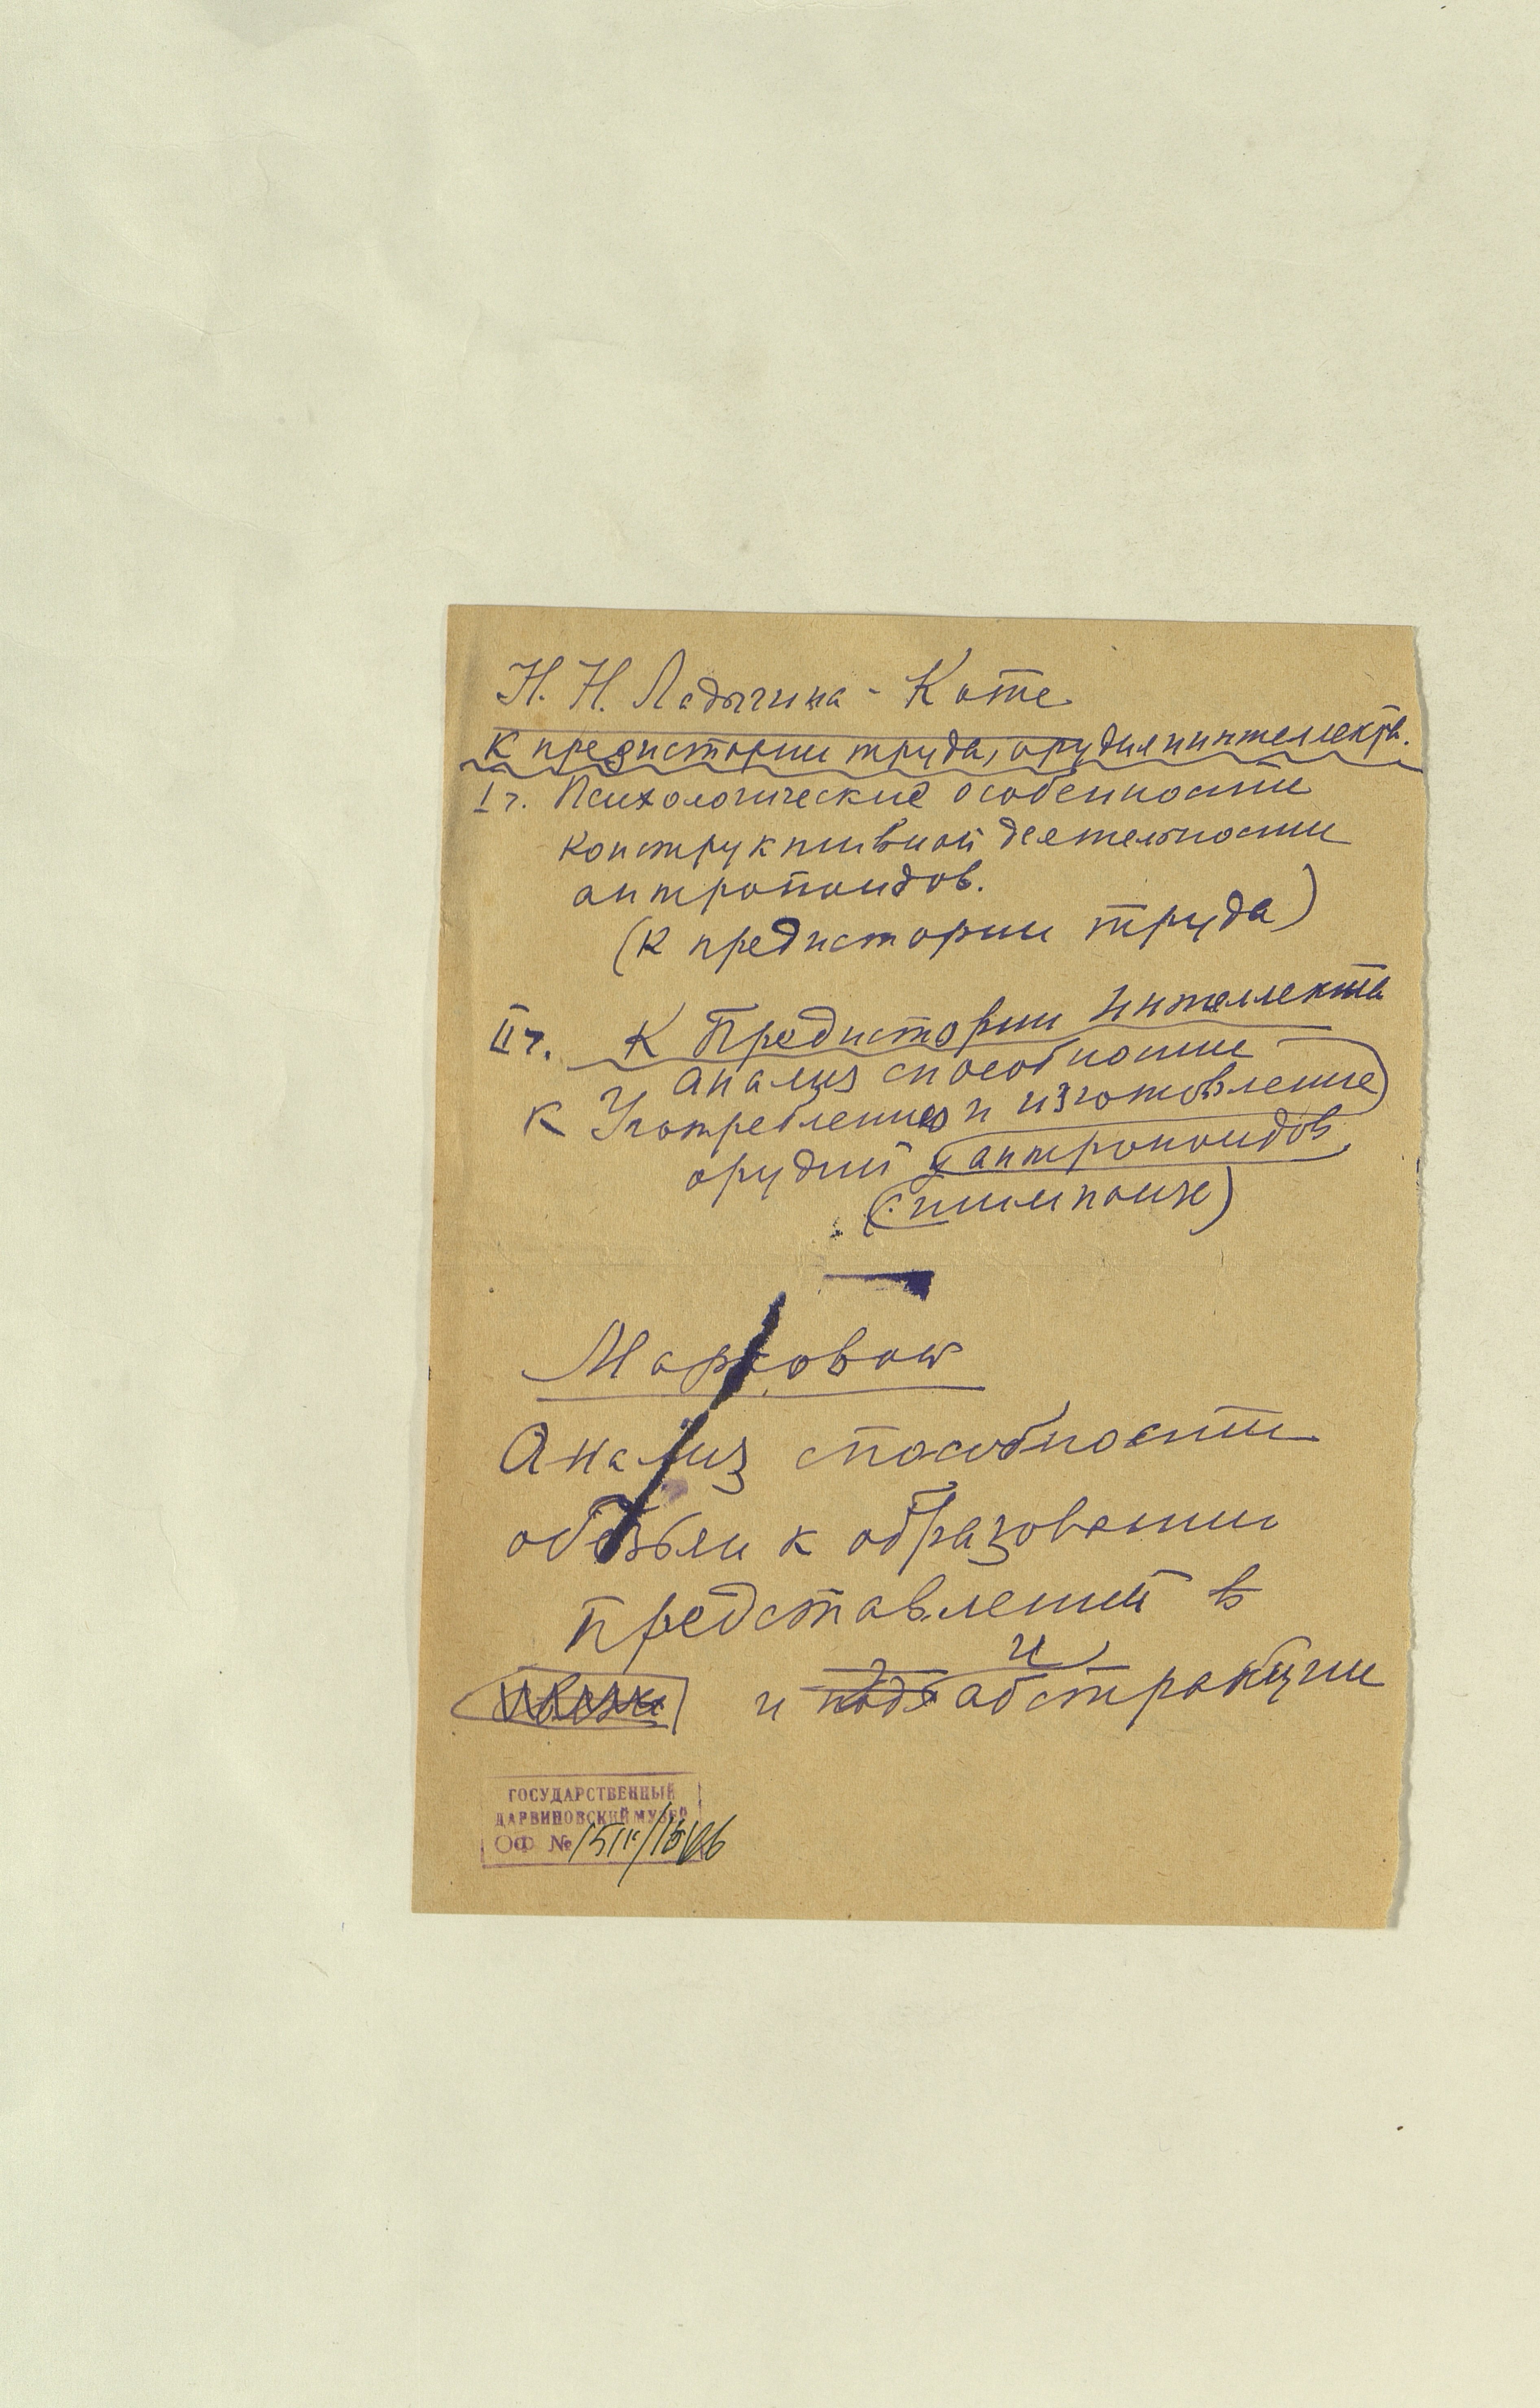 Н. Н. Ладыгина - Котс
К предистории труда, орудия и интеллекта.
I ч. Психологические особенности
конструктивной деятельности
антропоидов.
(К предистории труда)
II ч. К Предистории интеллекта
анализ способности
к Употреблению и изготовление
орудий у антропоидов
(шимпанзе)
Анализ способности
обезьян к образованию
представлений в
и абстракции
и
ГОСУДАРСТВЕННЫЙ
ДАРВИНОВСКИЙ МУЗЕЙ
ОФ №